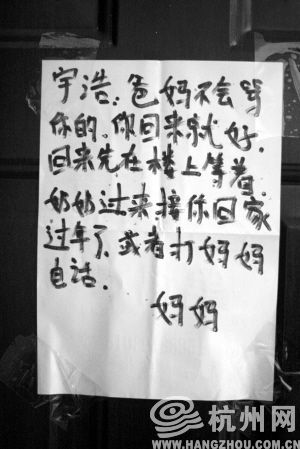 宇浩.爸妈不会骂
你的.你回来就好.
回来先在楼上等着.
奶奶过来接你回家
过年了、或者打妈妈
电话.
妈妈
杭州网
WWW.HANGZHOU.COM.CN